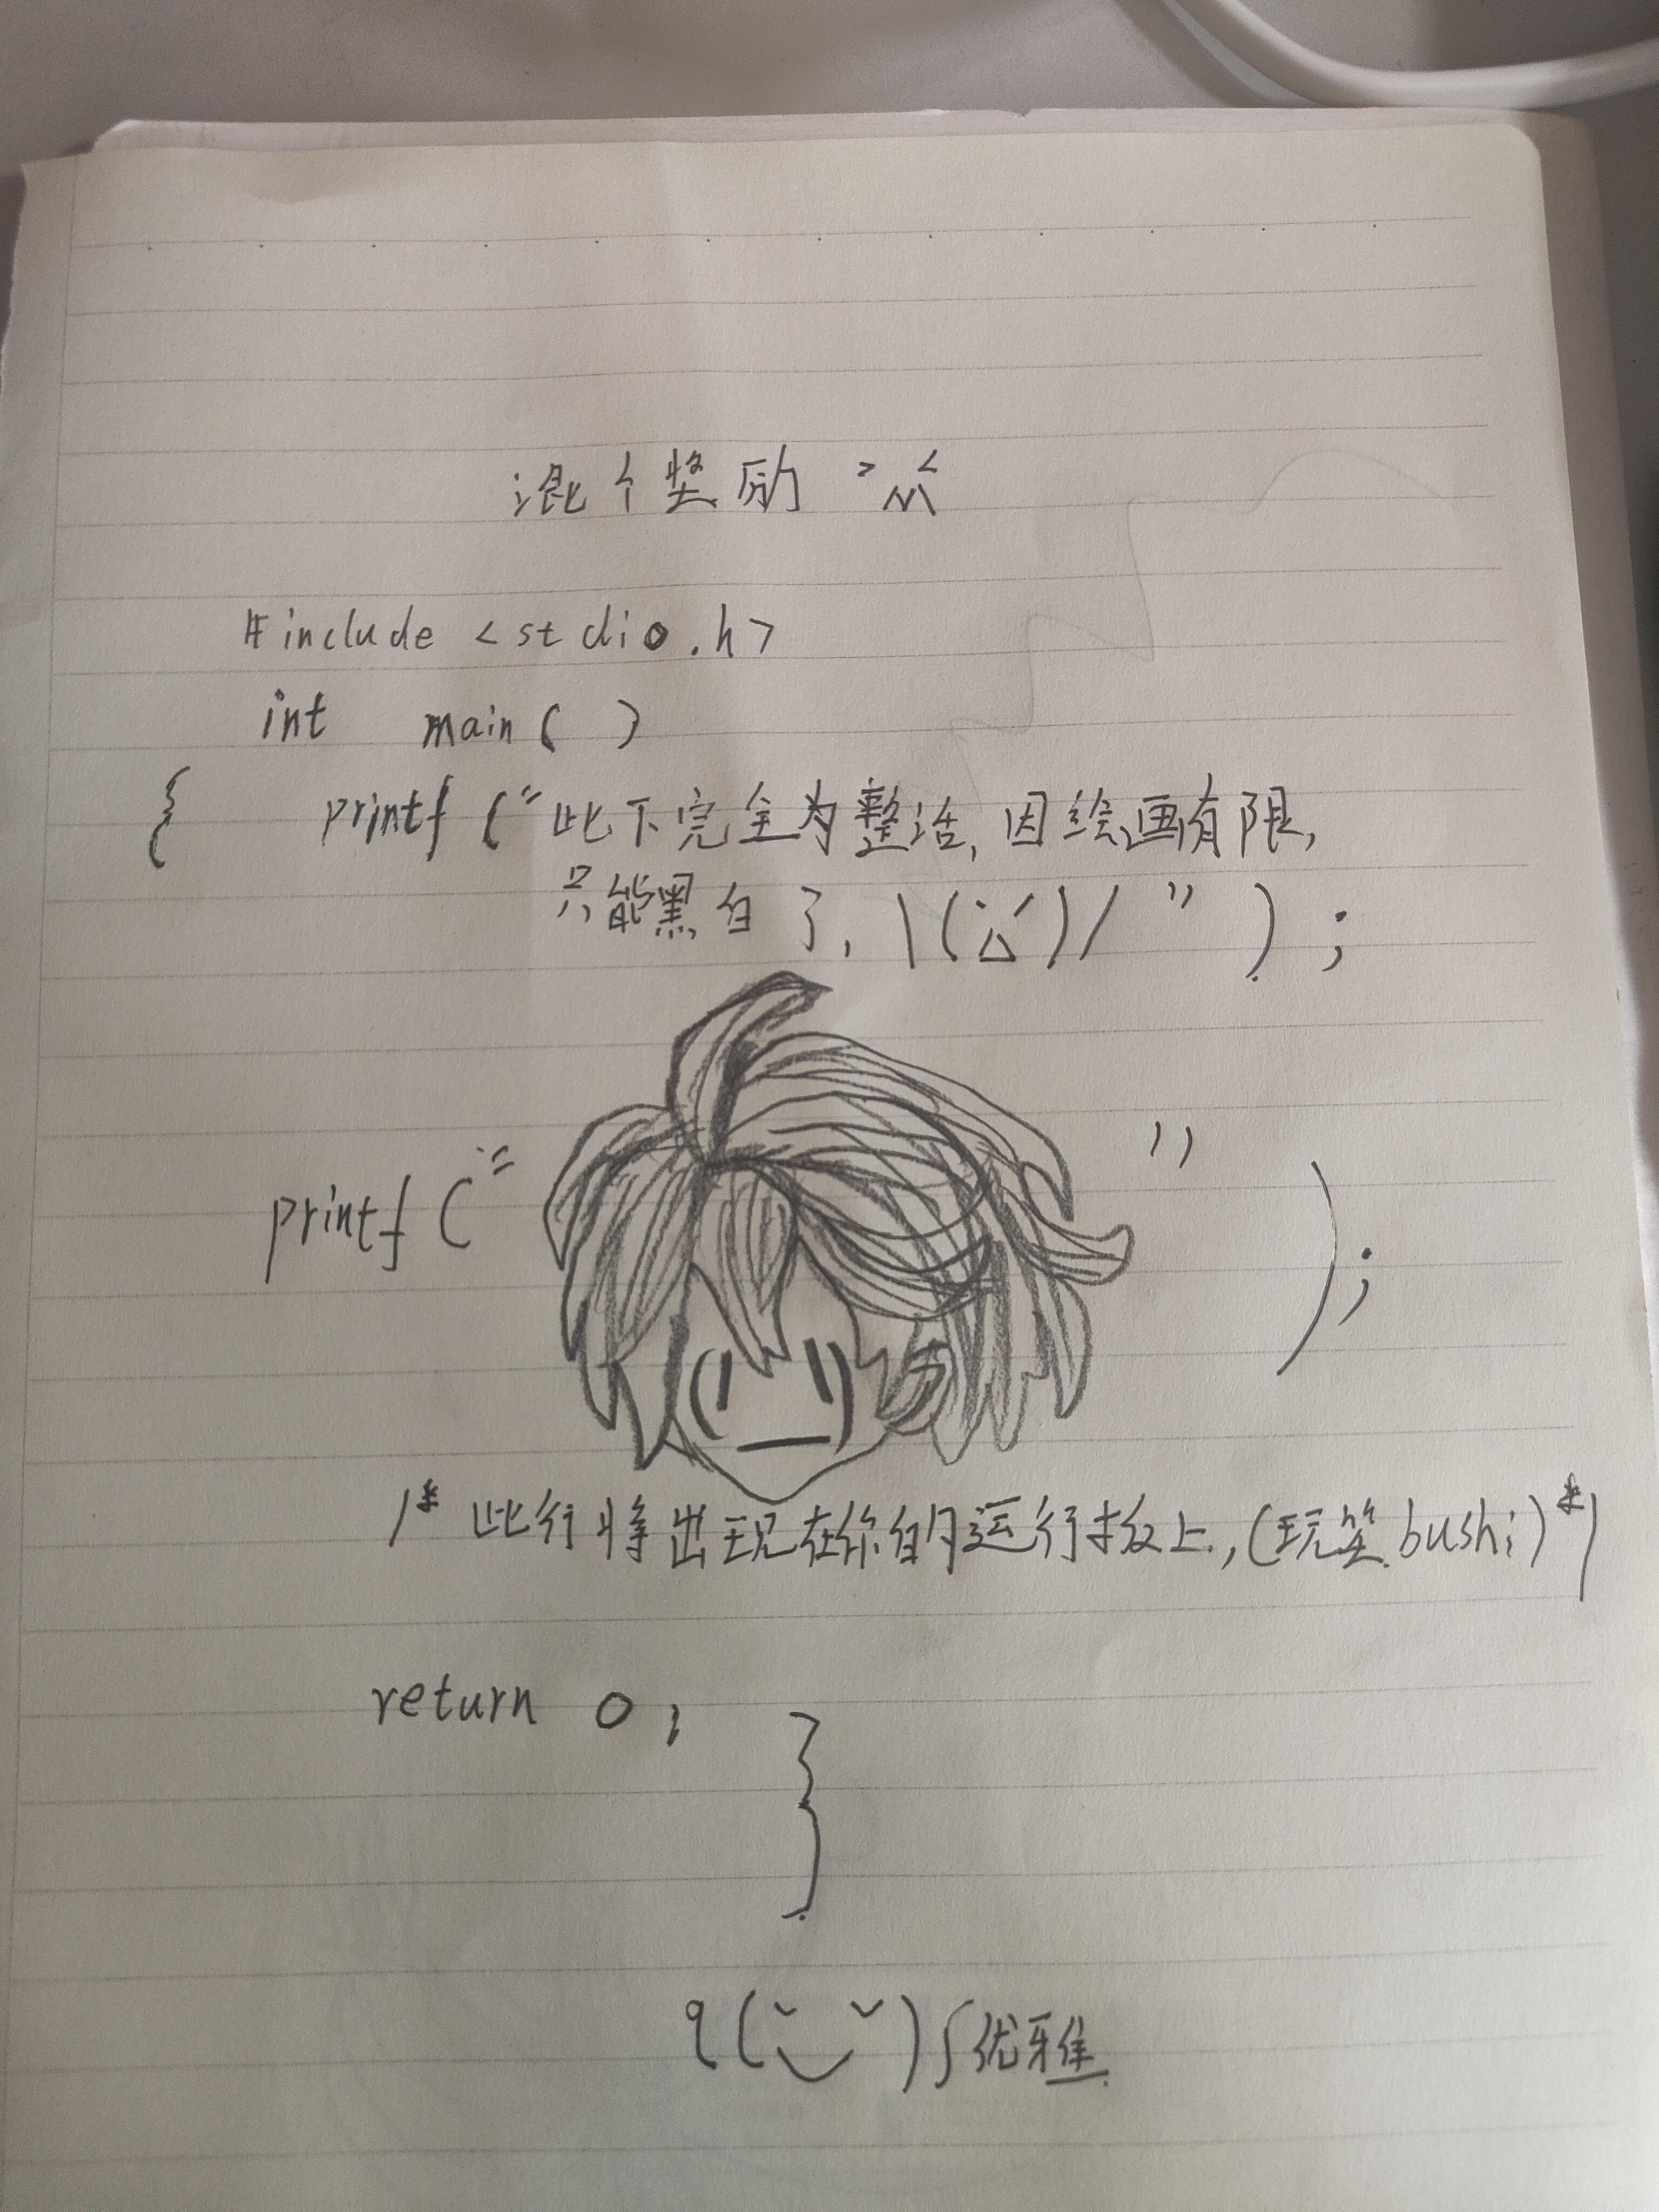 混个奖励 >灬<
#include <stdio.h>
int main( )
{ printf ("此下完全为整活,因绘画有限,
只能黑白了, \(ㆆ)/ " );
printf (" " );
/* 此行将出现在你的运行板上,(玩笑.bushi) */
return 0;
}
q(˘‿˘)ʃ优雅.